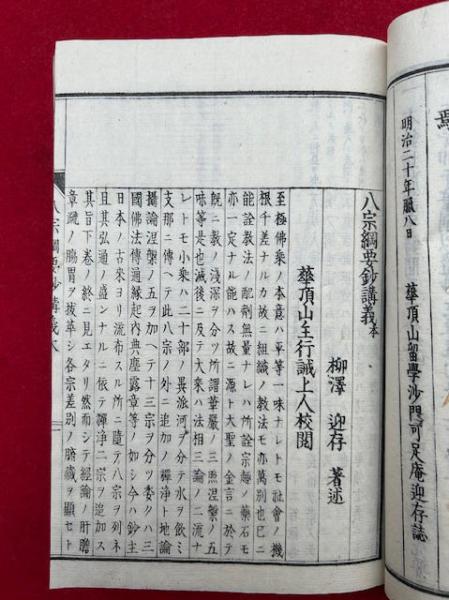 明治二十年臘八日
華頂山留學沙門可足庵迎存誌
八宗綱要鈔講義本
柳澤迎存著述
華頂山主行誡上人校閲
至極佛乘ノ本意ハ平等一味ナレトモ社會ノ機
根千差ナルカ故ニ組織ノ教法モ亦萬別也已ニ
能詮教法ノ配劑無量ナレハ所詮宗趣ノ藥石モ
亦一定ナル能ハス故ニ源ト大聖ノ金言ニ於テ
既ニ教ノ淺深ヲ分ツ所謂華嚴ノ三照涅槃ノ五
味等是也滅後ニ及テ大乘ハ法相三論ノ二流ナ
レトモ小乘ハ二十部ノ異派河ヲ分テ水ヲ飲ミ
支那ニ傳ヘテ此八宗ノ外ニ追加ノ禪淨ト地論
攝論涅槃ノ五ヲ加ヘテ十三宗ヲ分ツ委クハ三
國佛法傳通縁起内典塵露章等ノ如シ今ハ鈔主
日本ノ古來ヨリ流布スル所ニ隨テ八宗ヲ列ネ
且其弘通ノ盛ンナルニ依テ禪淨二宗ヲ追加ス
其旨下卷ノ終ニ見エタリ然而シテ經論ノ肝膽
章疏ノ膓胃ヲ拔萃シ各宗差別ノ臍藏ヲ顯セト
八宗綱要鈔講義